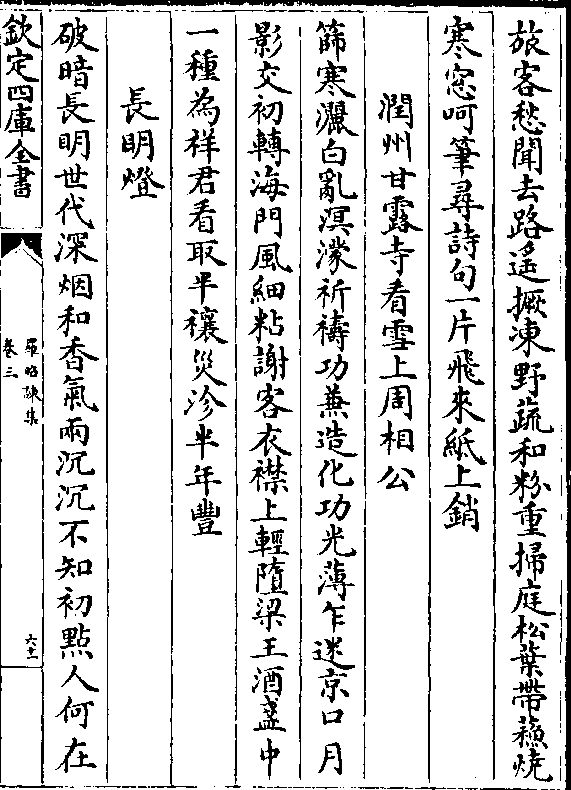 旅客愁聞去路遙撅凍野蔬和粉重掃庭松葉帶蘓燒
寒窓呵筆尋詩句一片飛來紙上銷
潤州甘露寺看雪上周相公
篩寒灑白亂溟濛祈禱功兼造化功光薄乍迷京口月
影交初轉海門風細粘謝客衣襟上輕隨梁王酒盞中
一種為祥君看取半穰災沴半年豐
長明燈
破暗長明世代深烟和香氣兩沉沉不知初點人何在
欽定四庫全書
羅昭諫集
卷三
六十一